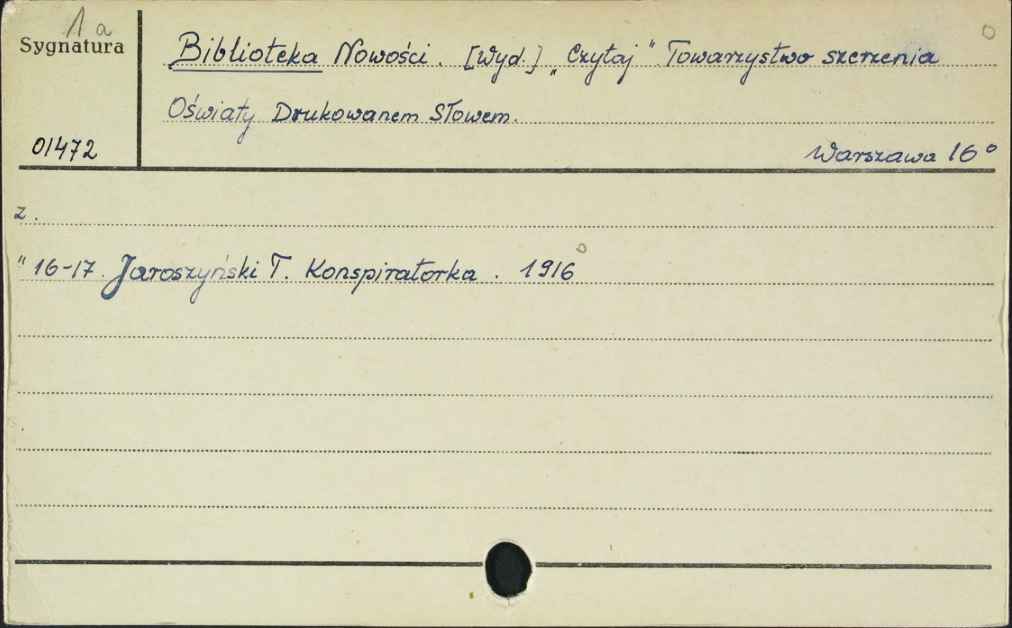 1a
Sygnatura
Biblioteka Nowości. [Wyd.] „Czytaj" Towarzystwo szerzenia
Oświaty Drukowanem Słowem.
01472
Warszawa 16°
z.
" 16-17. Jaroszyński T. Konspiratorka. 1916